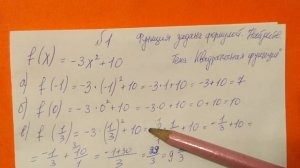 №1
Функция задана формулой. Найдите
f(x) = -3x² + 10
Тема "Квадратичная функция"
а) f(-1) = -3·(-1)² + 10 = -3·1 + 10 = -3 + 10 = 7
б) f(0) = -3·0² + 10 = -3·0 + 10 = 0 + 10 = 10
в) f(1/3) = -3·(1/3)² + 10 = 1/9 + 10 = -1/3 + 10 =
= -1/3 + 10/1 = -1+30/3 = 29/3 = 9